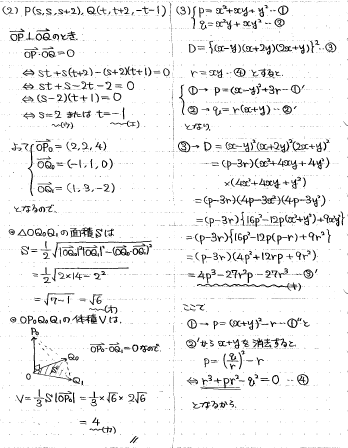 (2) P(s, s, s+2), Q(t, t+2, -t-1)
OP⊥OQのとき
OP・OQ = 0
⇔ st+s(t+2)-(s+2)(t+1)=0
⇔ st+s-2t-2=0
⇔ (s-2)(t+1)=0
⇔ s=2 または t=-1
(ウ) (エ)
よって
OP₀ = (2, 2, 4)
OQ₀ = (-1, 1, 0)
OQ₁ = (1, 3, -2)
となるので、
◎ △OQ₀Q₁の面積Sは
S = 1/2 √(|OQ₀|²|OQ₁|²-(OQ₀・OQ₁)²)
= 1/2 √(2×14-2²)
= √(7-1) = √6
(オ)
◎ OP₀Q₀Q₁の体積Vは、
P₀
Q₀
O
S
Q₁
OP₀・OQ₁=0なので
V = 1/3 S|OP₀| = 1/3×√6×2√6
= 4
(カ)
(3) p=x²+xy+y² …①
q=x²y+xy² …②
D={(x-y)(x+2y)(2x+y)}² …③
r=xy …④ とすると、
① → p=(x-y)²+3r …①'
② → q=r(x+y) …②'
となり、
③→ D=(x-y)²(x+2y)²(2x+y)²
=(p-3r)(x²+4xy+4y²)
×(4x²+4xy+y²)
=(p-3r)(4p-3x²)(4p-3y²)
=(p-3r){16p²-12p(x²+y²)+9x²y²}
=(p-3r){16p²-12p(p-r)+9r²}
=(p-3r)(4p²+12rp+9r²)
=4p³-27r²p-27r³ …③'
(キ)
ここで
①→ p=(x+y)²-r …①''と
②'から x+yを消去すると
p=(q/r)²-r
⇔ r³+pr²-q²=0 …④
となるから、